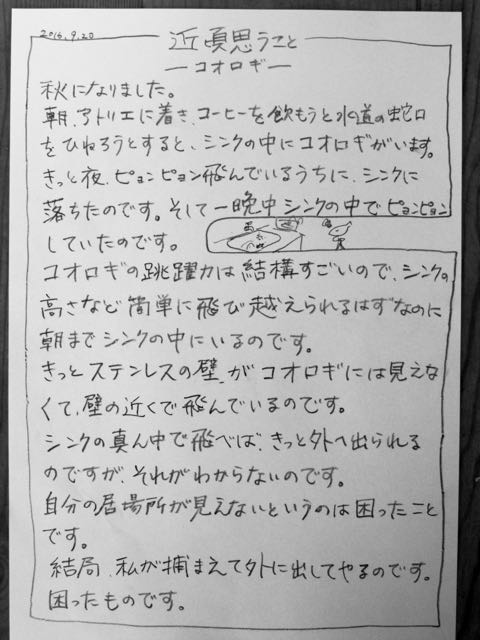 2016.9.20
近頃思うこと
ーコオロギー
秋になりました。
朝、アトリエに着き、コーヒーを飲もうと水道の蛇口
をひねろうとすると、シンクの中にコオロギがいます。
きっと夜、ピョンピョン飛んでいるうちに、シンクに
落ちたのです。そして一晩中シンクの中でピョンピョン
していたのです。
コオロギの跳躍力は結構すごいので、シンクの
高さなど簡単に飛び越えられるはずなのに
朝までシンクの中にいるのです。
きっとステンレスの壁がコオロギには見えな
くて、壁の近くで飛んでいるのです。
シンクの真ん中で飛べば、きっと外へ出られる
のですが、それがわからないのです。
自分の居場所が見えないというのは困ったこと
です。
結局、私が捕まえて外に出してやるのです。
困ったものです。